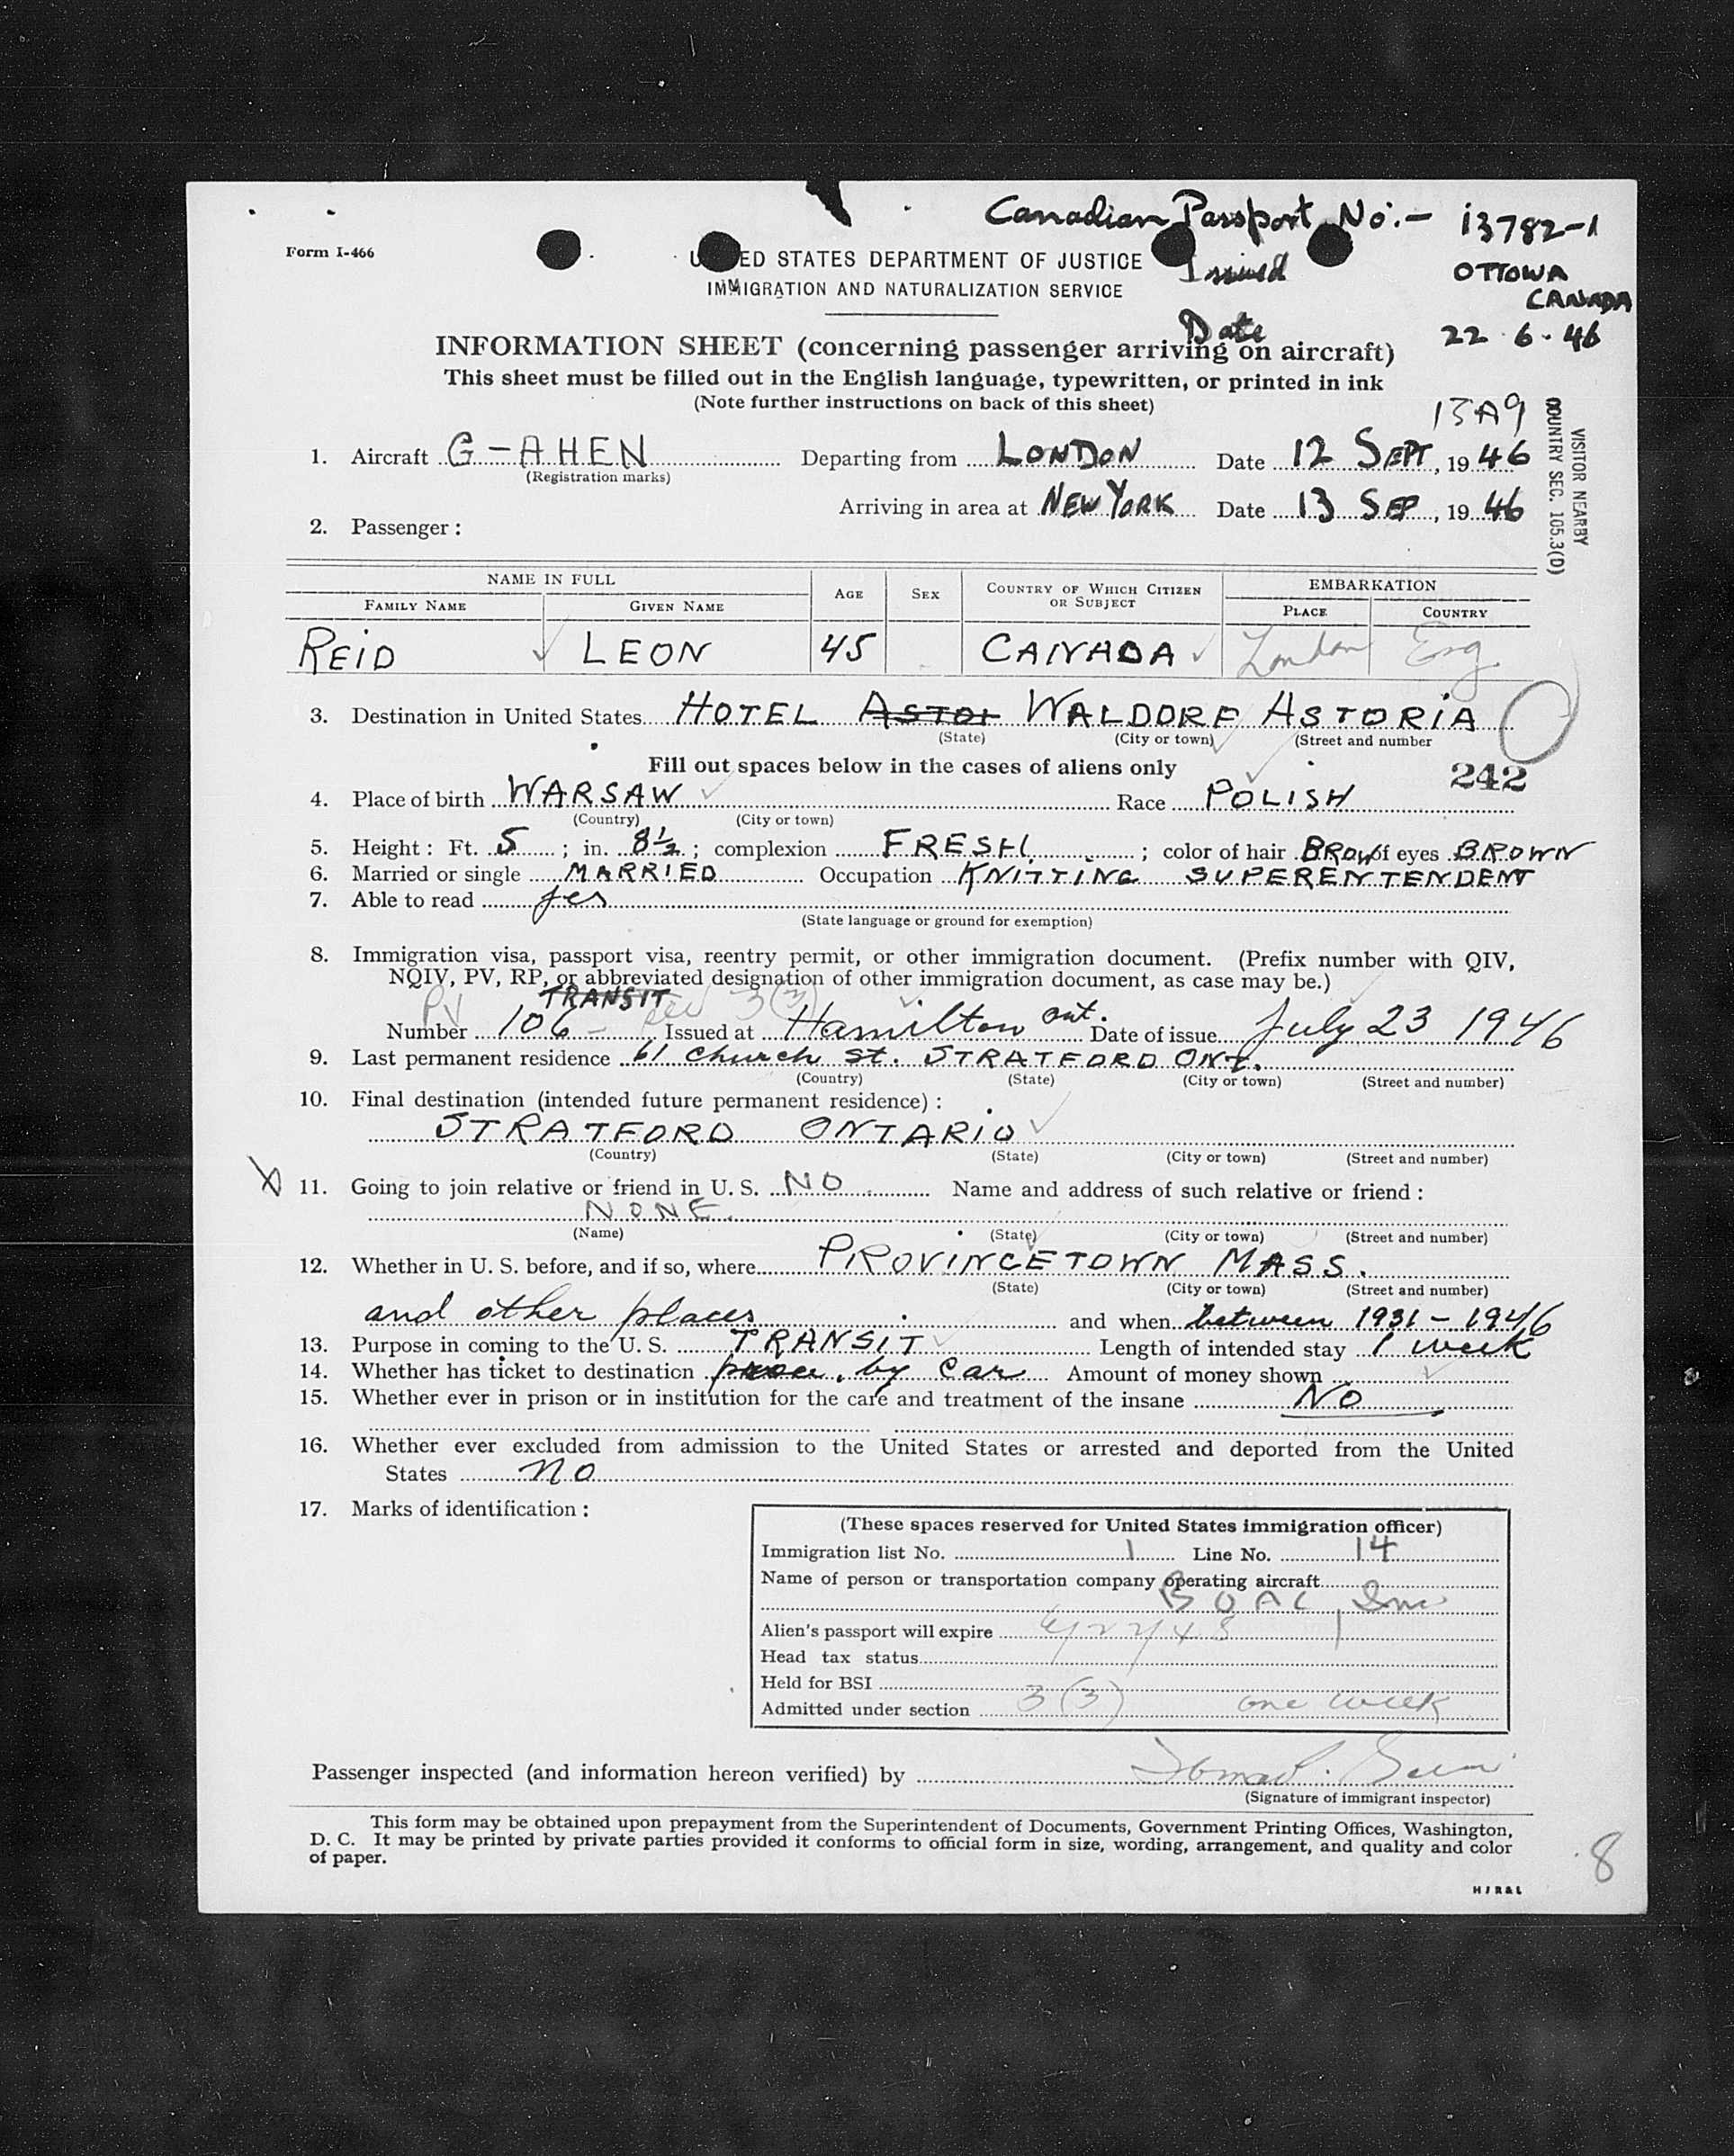 Canadian Passport No:- 13782-1
Form I-466
ED STATES DEPARTMENT OF JUSTICE
Issued OTTOWA
IMMIGRATION AND NATURALIZATION SERVICE
CANADA
Date 22.6.46
INFORMATION SHEET (concerning passenger arriving on aircraft)
This sheet must be filled out in the English language, typewritten, or printed in ink
(Note further instructions on back of this sheet)
13A9
VISITOR NEARBY
COUNTRY SEC. 105.3(D)
1. Aircraft G-AHEN Departing from LONDON Date 12 SEPT, 1946
(Registration marks)
Arriving in area at NEW YORK Date 13 SEP, 1946
2. Passenger:
NAME IN FULL AGE SEX COUNTRY OF WHICH CITIZEN OR SUBJECT EMBARKATION
FAMILY NAME GIVEN NAME PLACE COUNTRY
REID LEON 45 CANADA London Eng.
3. Destination in United States HOTEL ASTOR WALDORF ASTORIA
(State) (City or town) (Street and number
Fill out spaces below in the cases of aliens only
242
4. Place of birth WARSAW Race POLISH
(Country) (City or town)
5. Height: Ft. 5; in. 8½; complexion FRESH; color of hair BROW of eyes BROWN
6. Married or single MARRIED Occupation KNITTING SUPERENTENDENT
7. Able to read yes
(State language or ground for exemption)
8. Immigration visa, passport visa, reentry permit, or other immigration document. (Prefix number with QIV,
NQIV, PV, RP, or abbreviated designation of other immigration document, as case may be.)
PV TRANSIT 3(3)
Number 106 Issued at Hamilton Ont. Date of issue July 23 1946
9. Last permanent residence 61 Church St. STRATFORD ONT.
(Country) (State) (City or town) (Street and number)
10. Final destination (intended future permanent residence):
STRATFORD ONTARIO
(Country) (State) (City or town) (Street and number)
11. Going to join relative or friend in U. S. NO Name and address of such relative or friend:
NONE.
(Name) (State) (City or town) (Street and number)
12. Whether in U. S. before, and if so, where PROVINCETOWN MASS.
(State) (City or town) (Street and number)
and other places and when between 1931-1946
13. Purpose in coming to the U. S. TRANSIT Length of intended stay 1 week
14. Whether has ticket to destination by car Amount of money shown
15. Whether ever in prison or in institution for the care and treatment of the insane NO
16. Whether ever excluded from admission to the United States or arrested and deported from the United
States no
17. Marks of identification:
(These spaces reserved for United States immigration officer)
Immigration list No. 1 Line No. 14
Name of person or transportation company operating aircraft
BOAC
Alien's passport will expire 6/22/48
Head tax status
Held for BSI
Admitted under section 3(3) one week
Passenger inspected (and information hereon verified) by
(Signature of immigrant inspector)
This form may be obtained upon prepayment from the Superintendent of Documents, Government Printing Offices, Washington,
D. C. It may be printed by private parties provided it conforms to official form in size, wording, arrangement, and quality and color
of paper.
8
H J R & L